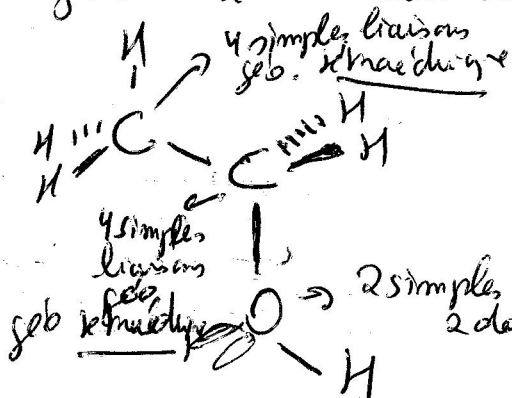 H
4 simples liaisons
géo. tétraédrique
H C H
H C H
4 simples
liaisons
géo
géo tétraédrique
O 2 simples
2 do
H